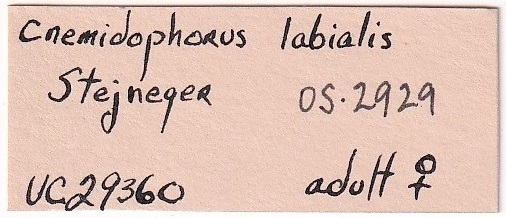 Cnemidophorus labialis
Stejneger OS·2929
UC29360 adult ♀